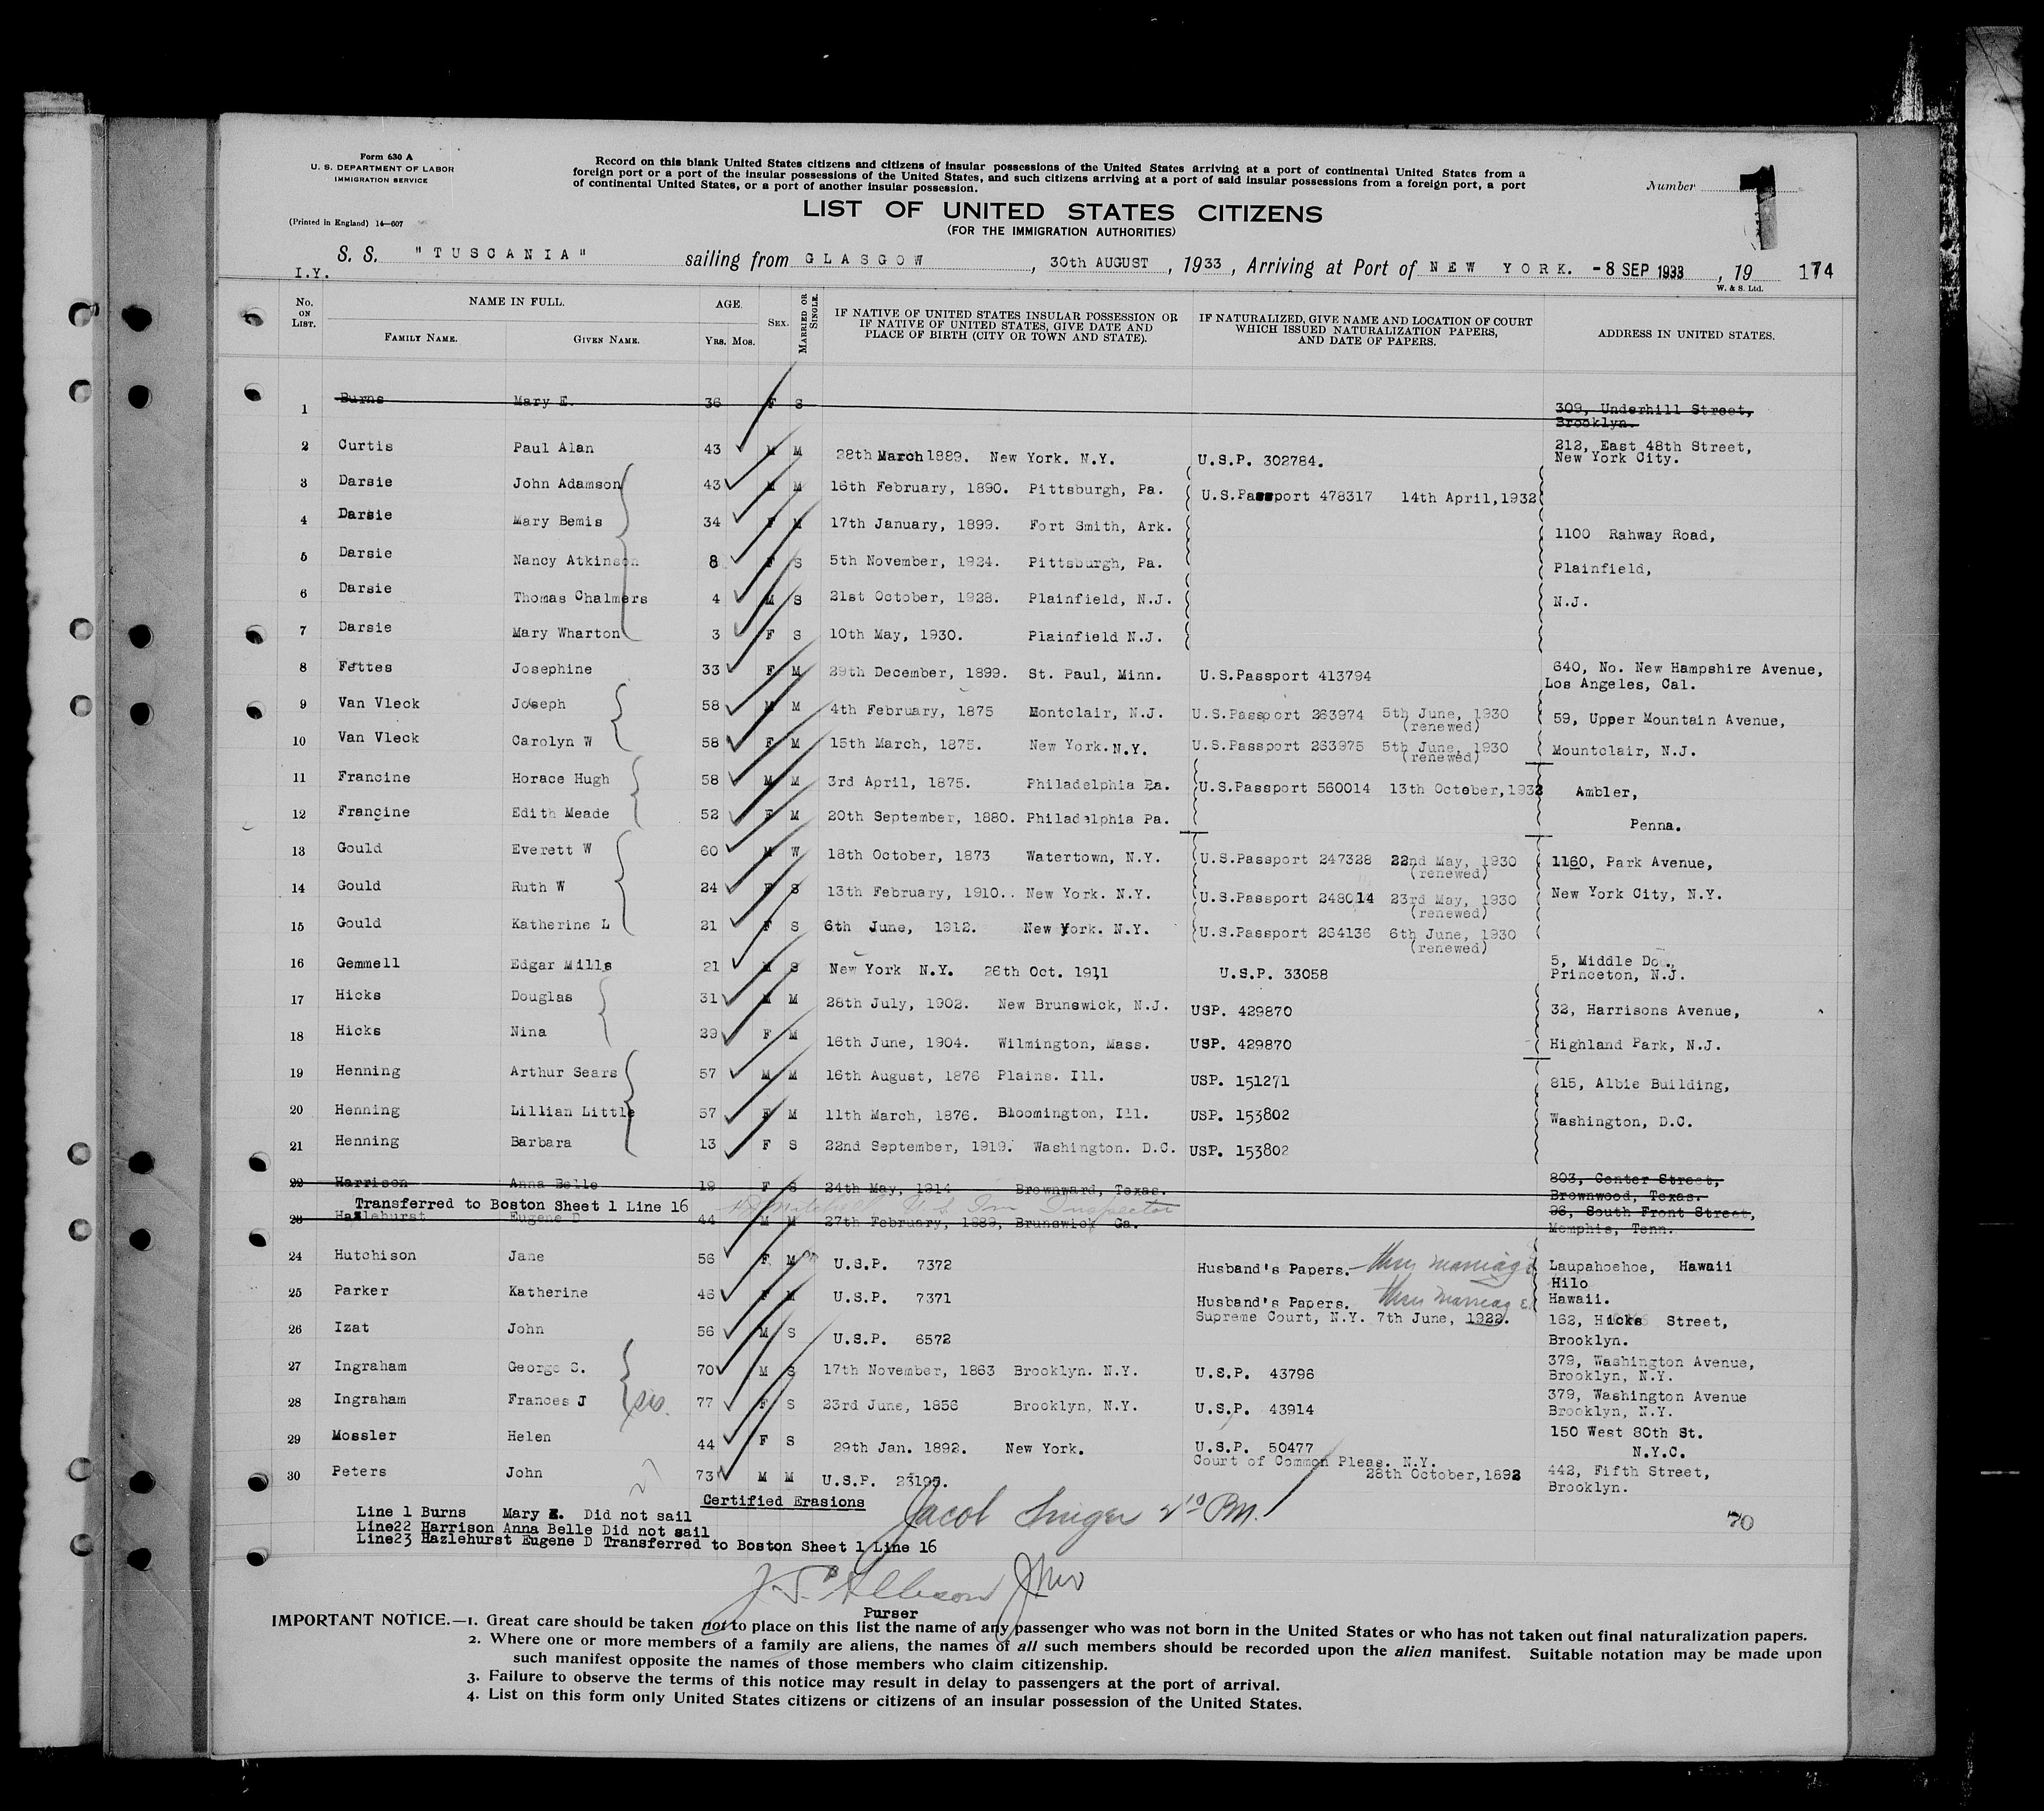 Form 630 A
U. S. DEPARTMENT OF LABOR
IMMIGRATION SERVICE
(Printed in England) 14—607
Record on this blank United States citizens and citizens of insular possessions of the United States arriving at a port of continental United States from a
foreign port or a port of the insular possessions of the United States, and such citizens arriving at a port of said insular possessions from a foreign port, a port
of continental United States, or a port of another insular possession.
Number 1
LIST OF UNITED STATES CITIZENS
(FOR THE IMMIGRATION AUTHORITIES)
I.Y. S. S. "TUSCANIA" sailing from GLASGOW, 30th AUGUST, 1933, Arriving at Port of NEW YORK. -8 SEP 1933, 19 174
W. & S. Ltd.
No. ON LIST. NAME IN FULL. FAMILY NAME. GIVEN NAME. AGE. Yrs. Mos. SEX. MARRIED OR SINGLE. IF NATIVE OF UNITED STATES INSULAR POSSESSION OR IF NATIVE OF UNITED STATES, GIVE DATE AND PLACE OF BIRTH (CITY OR TOWN AND STATE). IF NATURALIZED, GIVE NAME AND LOCATION OF COURT WHICH ISSUED NATURALIZATION PAPERS, AND DATE OF PAPERS. ADDRESS IN UNITED STATES.
1 Burns Mary E. 36 F S 309, Underhill Street,
Brooklyn.
2 Curtis Paul Alan 43 M M 28th March 1889. New York. N.Y. U.S.P. 302784. 212, East 48th Street,
New York City.
3 Darsie John Adamson 43 M M 16th February, 1890. Pittsburgh, Pa. U.S.Passport 478317 14th April,1932
4 Darsie Mary Bemis 34 F M 17th January, 1899. Fort Smith, Ark. 1100 Rahway Road,
5 Darsie Nancy Atkinson 8 F S 5th November, 1924. Pittsburgh, Pa. Plainfield,
6 Darsie Thomas Chalmers 4 M S 21st October, 1928. Plainfield, N.J. N.J.
7 Darsie Mary Wharton 3 F S 10th May, 1930. Plainfield N.J.
8 Fettes Josephine 33 F M 29th December, 1899. St. Paul, Minn. U.S.Passport 413794 640, No. New Hampshire Avenue,
Los Angeles, Cal.
9 Van Vleck Joseph 58 M M 4th February, 1875 Montclair, N.J. U.S.Passport 263974 5th June, 1930 59, Upper Mountain Avenue,
(renewed)
10 Van Vleck Carolyn W 58 F M 15th March, 1875. New York.N.Y. U.S.Passport 263975 5th June, 1930 Mountclair, N.J.
(renewed)
11 Francine Horace Hugh 58 M M 3rd April, 1875. Philadelphia Pa. U.S.Passport 560014 13th October,1932 Ambler,
12 Francine Edith Meade 52 F M 20th September, 1880. Philadelphia Pa. Penna.
13 Gould Everett W 60 M W 18th October, 1873 Watertown, N.Y. U.S.Passport 247328 22nd May, 1930 1160, Park Avenue,
(renewed)
14 Gould Ruth W 24 F S 13th February, 1910.. New York. N.Y. U.S.Passport 248014 23rd May, 1930 New York City, N.Y.
(renewed)
15 Gould Katherine L 21 F S 6th June, 1912. New York. N.Y. U.S.Passport 264136 6th June, 1930
(renewed)
16 Gemmell Edgar Mills 21 M S New York N.Y. 26th Oct. 1911 U.S.P. 33058 5, Middle
Princeton, N.J.
17 Hicks Douglas 31 M M 28th July, 1902. New Brunswick, N.J. USP. 429870 32, Harrisons Avenue,
18 Hicks Nina 29 F M 16th June, 1904. Wilmington, Mass. USP. 429870 Highland Park, N.J.
19 Henning Arthur Sears 57 M M 16th August, 1876 Plains. Ill. USP. 151271 815, Albie Building,
20 Henning Lillian Little 57 F M 11th March, 1876. Bloomington, Ill. USP. 153802 Washington, D.C.
21 Henning Barbara 13 F S 22nd September, 1919. Washington. D.C. USP. 153802
22 Harrison Anna Belle 19 F S 24th May, 1914 Brownward, Texas. 803, Center Street,
Brownwood, Texas.
Transferred to Boston Sheet 1 Line 16 U.S. Imm Inspector
23 Hazlehurst Eugene D 44 M M 27th February, 1889, Brunswick Ga. 96, South Front Street,
Memphis, Tenn.
24 Hutchison Jane 56 F M U.S.P. 7372 Husband's Papers. thru marriage Laupahoehoe, Hawaii
25 Parker Katherine 46 F M U.S.P. 7371 Husband's Papers. thru marriage Hilo
Hawaii.
26 Izat John 56 M S U.S.P. 6572 Supreme Court, N.Y. 7th June, 1922. 162, Hicks Street,
Brooklyn.
27 Ingraham George S. 70 M S 17th November, 1863 Brooklyn. N.Y. U.S.P. 43796 379, Washington Avenue,
Brooklyn, N.Y.
28 Ingraham Frances J sis. 77 F S 23rd June, 1856 Brooklyn, N.Y. U.S.P. 43914 379, Washington Avenue
Brooklyn, N.Y.
29 Mossler Helen 44 F S 29th Jan. 1892. New York. U.S.P. 50477 150 West 80th St.
N.Y.C.
30 Peters John 73 M M U.S.P. 23195. Court of Common Pleas. N.Y. 442, Fifth Street,
28th October,1892 Brooklyn.
Certified Erasions
Line 1 Burns Mary E. Did not sail
Line22 Harrison Anna Belle Did not sail
Line23 Hazlehurst Eugene D Transferred to Boston Sheet 1 Line 16
Jacob Singer
70
Purser
IMPORTANT NOTICE.—1. Great care should be taken not to place on this list the name of any passenger who was not born in the United States or who has not taken out final naturalization papers.
2. Where one or more members of a family are aliens, the names of all such members should be recorded upon the alien manifest. Suitable notation may be made upon
such manifest opposite the names of those members who claim citizenship.
3. Failure to observe the terms of this notice may result in delay to passengers at the port of arrival.
4. List on this form only United States citizens or citizens of an insular possession of the United States.